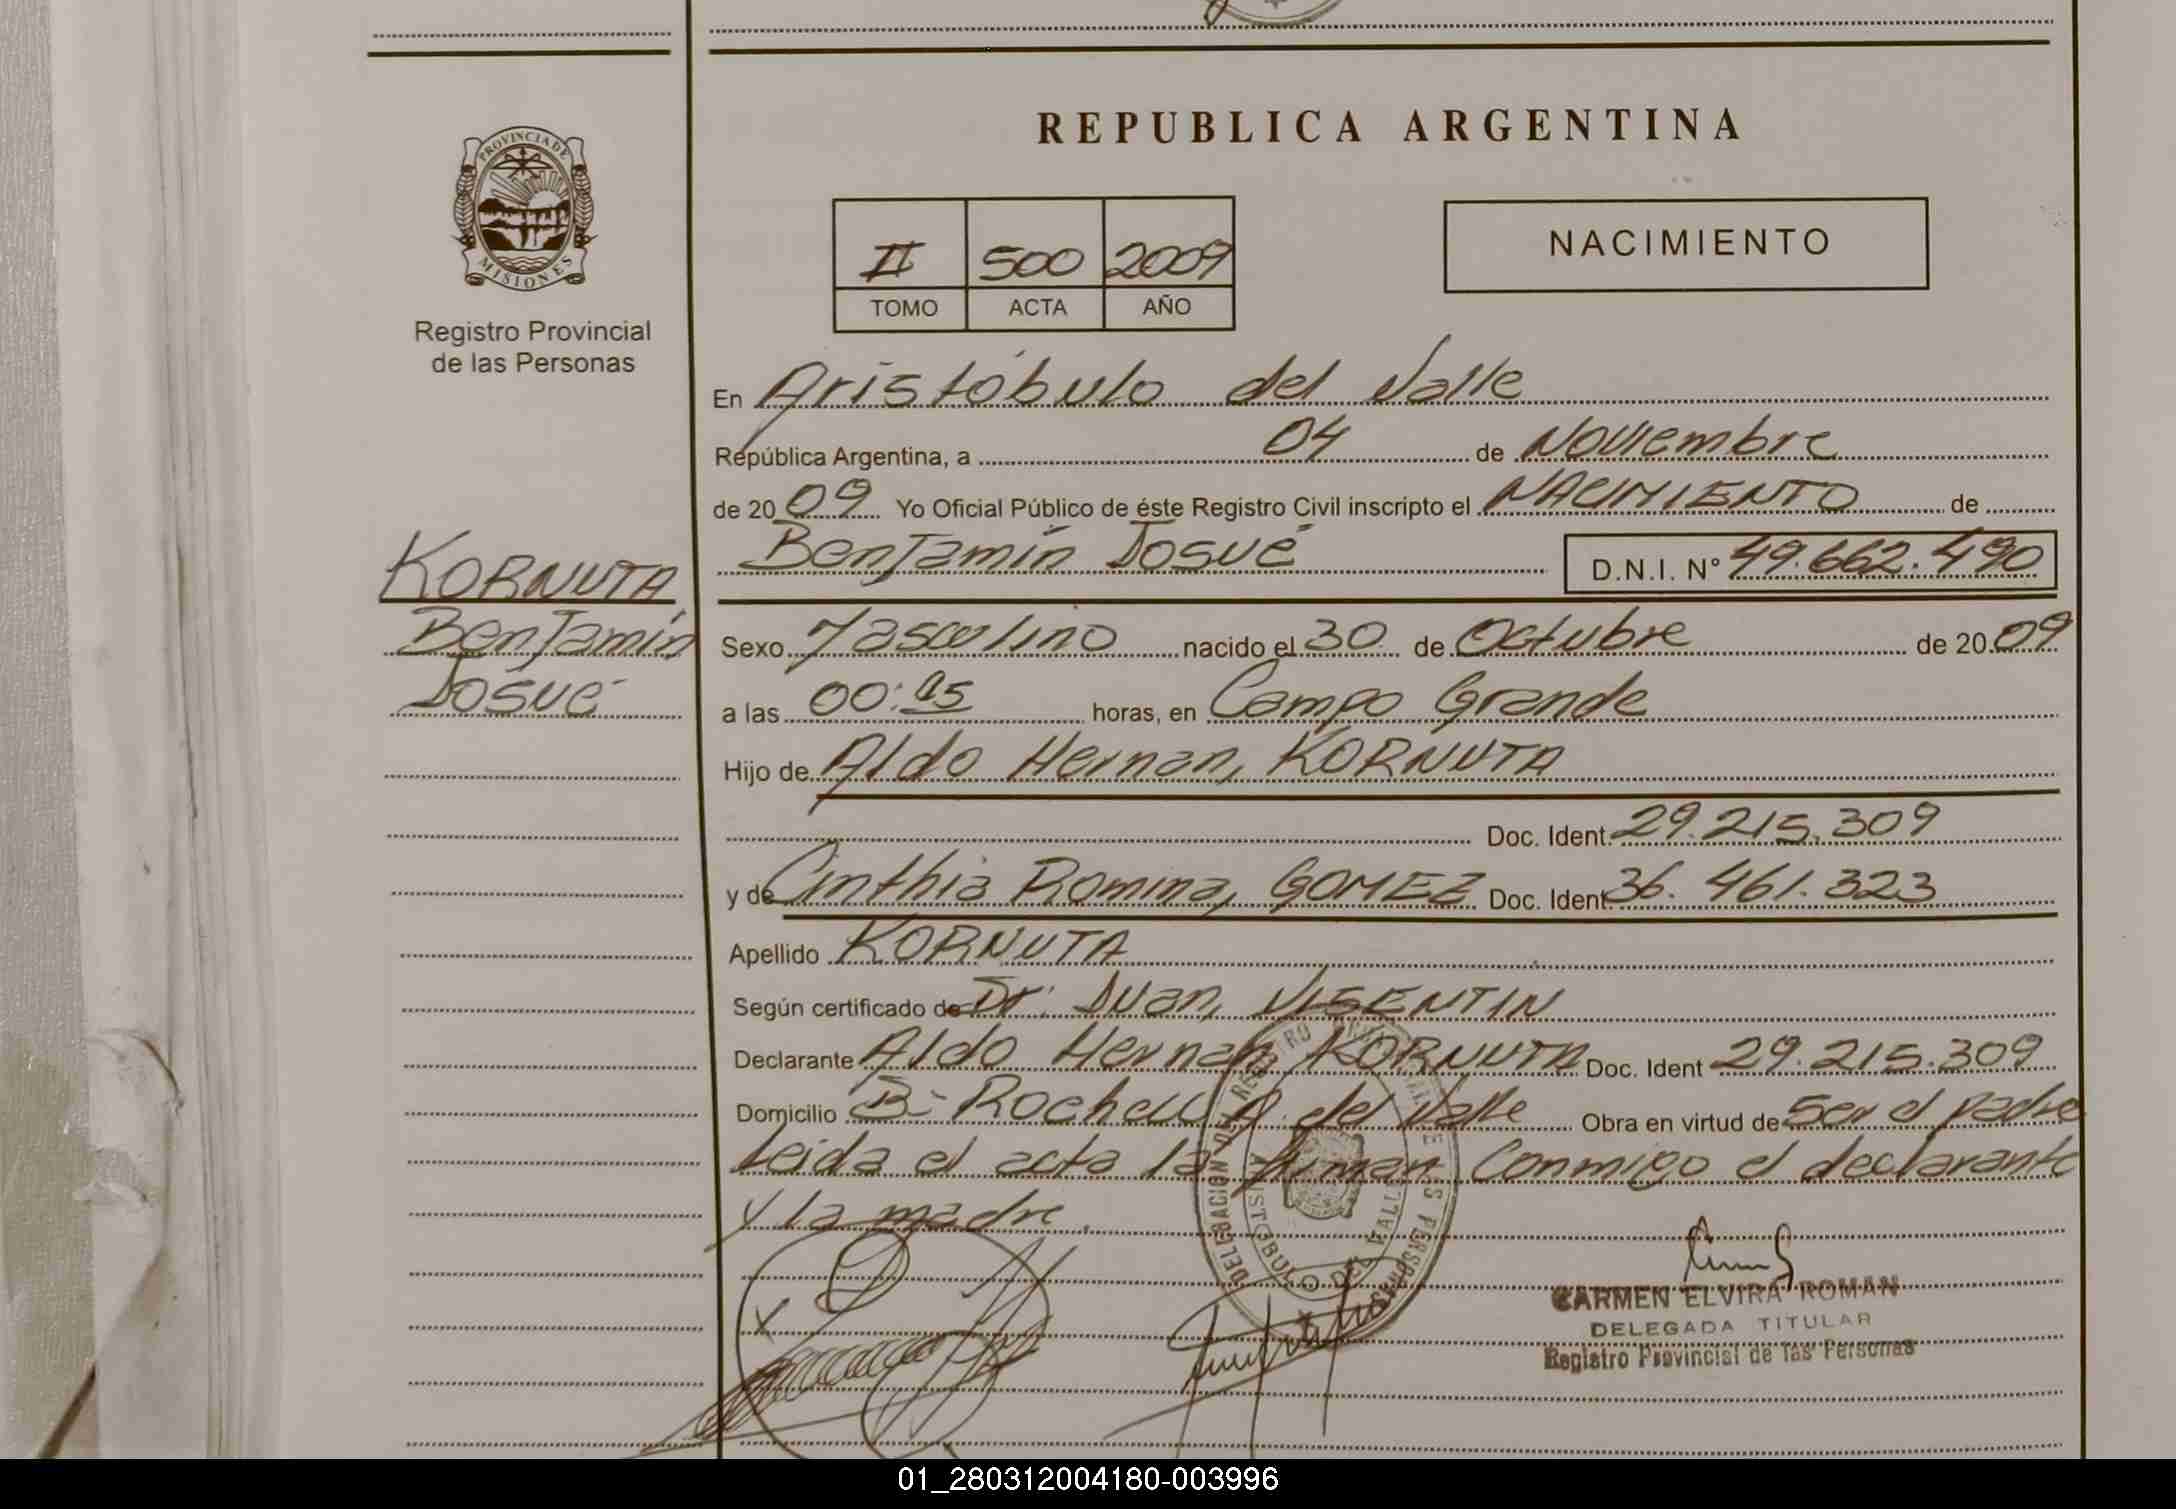 REPUBLICA ARGENTINA
PROVINCIA DE
MISIONES
Registro Provincial
de las Personas
II 500 2009
TOMO ACTA AÑO
NACIMIENTO
En Aristóbulo del Valle
República Argentina, a 04 de Noviembre
de 2009 Yo Oficial Público de éste Registro Civil inscripto el NACIMIENTO de
Benjamín Josué D.N.I. N° 49.662.490
KORNUTA
Benjamín
Josué
Sexo Masculino nacido el 30 de Octubre de 2009
a las 00:15 horas, en Campo Grande
Hijo de Aldo Hernan, KORNUTA
Doc. Ident. 29.215.309
y de Cinthia Romina, GOMEZ Doc. Ident 36.461.323
Apellido KORNUTA
Según certificado de Dr. Juan, VISENTIN
Declarante Aldo Hernan KORNUTA Doc. Ident 29.215.309
Domicilio B- A. del Valle Obra en virtud de Ser el padre
Leida el acta la firman Conmigo el declarante
y la madre.
DELEGACION DEL REGISTRO DE LAS PERSONAS
ARISTOBULO DEL VALLE
CARMEN ELVIRA ROMAN
DELEGADA TITULAR
Registro Provincial de las Personas
01_280312004180-003996